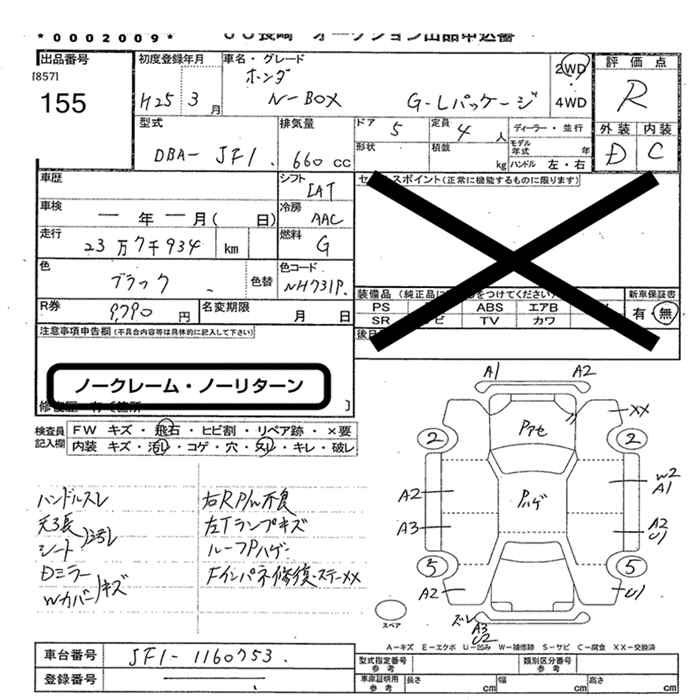 *0002009* JU長崎 オークション出品申込書
出品番号 初度登録年月 車名・グレード 評価点
[857] ホンダ 2WD
155 H25 3月 N-BOX G-Lパッケージ 4WD R
型式 排気量 ドア 5 定員 4人 ディーラー・並行 外装 内装
形状 積載 kg モデル年式 年
DBA-JF1 660cc ハンドル 左・右 D C
車歴 シフト IAT セールスポイント(正常に機能するものに限ります)
車検 ー年ー月(日) 冷房 AAC
走行 23万7千934 km 燃料 G
色 ブラック 色替 色コード NH731P 装備品(純正品に をつけてください) 新車保証書
R券 9,790円 名変期限 月 日 PS ABS エアB 有・無
SR ナビ TV カワ
注意事項申告欄(不具合内容等は具体的に記入して下さい) 後日
ノークレーム・ノーリターン
修復歴 有(箇所 )
検査員 FW キズ・飛石・ヒビ割・リペア跡・×要
記入欄 内装 キズ・汚レ・コゲ・穴・スレ・キレ・破レ
ハンドルスレ 右RP/W不良
天3長 左Tランプキズ
シート 汚レ ルーフPハゲ
Dミラー Fインパネ修復・ステーXX
Wカバー キズ
A1 A2
XX
2 Pアセ 2
A2 Pハゲ W2 A1
A3 A2 U1
5 5
A2 U1
ズレ A3 U2
スペア
A-キズ E-エクボ U-凹み W-補修跡 S-サビ C-腐食 XX-交換済
車台番号 JF1-1160753 型式指定番号 参考 類別区分番号 参考
登録番号 ー 車庫証明用 参考 長さ cm 幅 cm 高さ cm